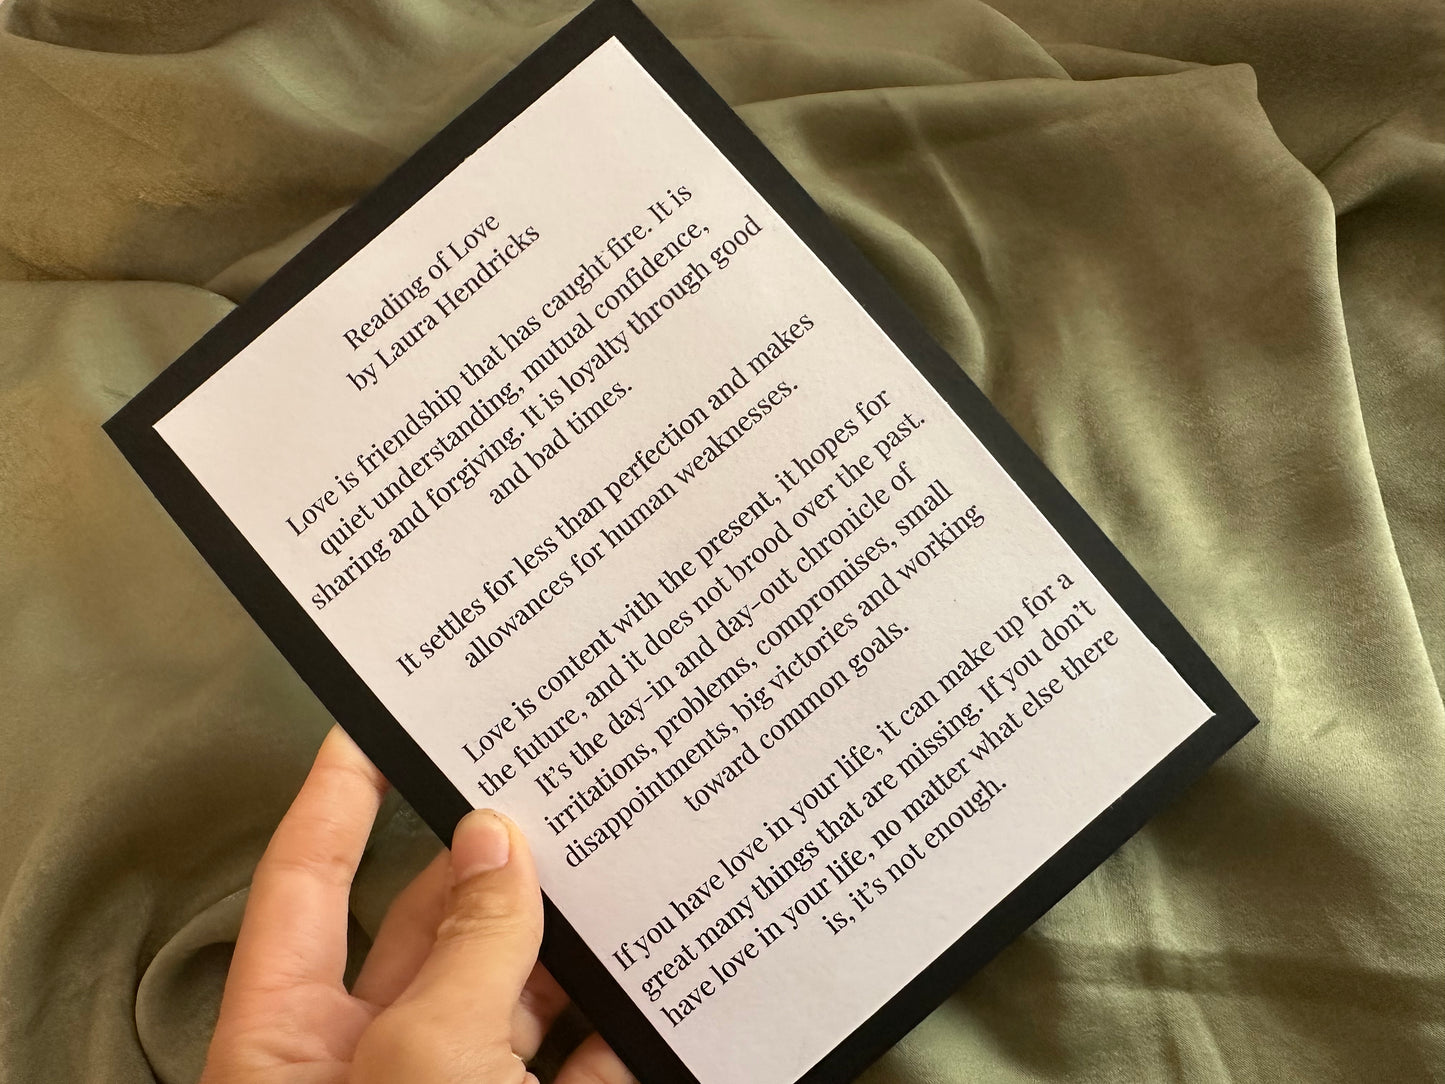 Reading of Love
by Laura Hendricks
Love is friendship that has caught fire. It is
quiet understanding, mutual confidence,
sharing and forgiving. It is loyalty through good
and bad times.
It settles for less than perfection and makes
allowances for human weaknesses.
Love is content with the present, it hopes for
the future, and it does not brood over the past.
It's the day-in and day-out chronicle of
irritations, problems, compromises, small
disappointments, big victories and working
toward common goals.
If you have love in your life, it can make up for a
great many things that are missing. If you don't
have love in your life, no matter what else there
is, it's not enough.